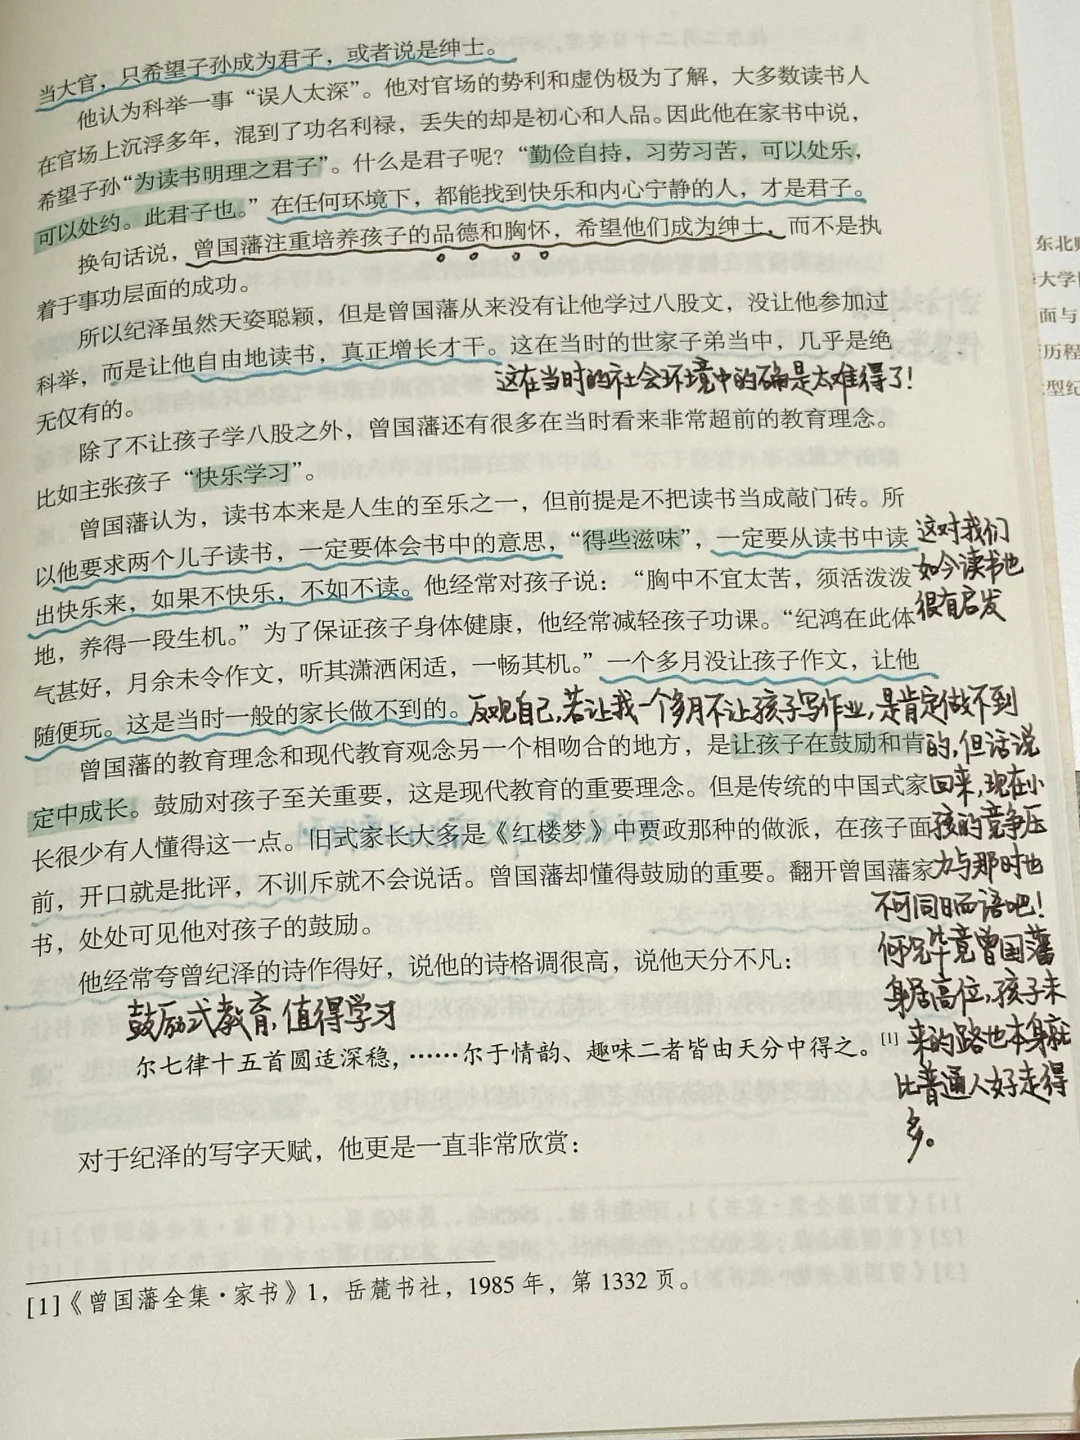 当大官，只希望子孙成为君子，或者说是绅士。
他认为科举一事“误人太深”。他对官场的势利和虚伪极为了解，大多数读书人
在官场上沉浮多年，混到了功名利禄，丢失的却是初心和人品。因此他在家书中说，
希望子孙“为读书明理之君子”。什么是君子呢？“勤俭自持，习劳习苦，可以处乐，
可以处约。此君子也。”在任何环境下，都能找到快乐和内心宁静的人，才是君子。
换句话说，曾国藩注重培养孩子的品德和胸怀，希望他们成为绅士，而不是执
着于事功层面的成功。
所以纪泽虽然天姿聪颖，但是曾国藩从来没有让他学过八股文，没让他参加过
科举，而是让他自由地读书，真正增长才干。这在当时的世家子弟当中，几乎是绝
无仅有的。
这在当时的社会环境中的确是太难得了！
除了不让孩子学八股之外，曾国藩还有很多在当时看来非常超前的教育理念。
比如主张孩子“快乐学习”。
曾国藩认为，读书本来是人生的至乐之一，但前提是不把读书当成敲门砖。所
以他要求两个儿子读书，一定要体会书中的意思，“得些滋味”，一定要从读书中读
出快乐来，如果不快乐，不如不读。他经常对孩子说：“胸中不宜太苦，须活泼泼
地，养得一段生机。”为了保证孩子身体健康，他经常减轻孩子功课。“纪鸿在此体
气甚好，月余未令作文，听其潇洒闲适，一畅其机。”一个多月没让孩子作文，让他
随便玩。这是当时一般的家长做不到的。
这对我们
如今读书也
很有启发
曾国藩的教育理念和现代教育观念另一个相吻合的地方，是让孩子在鼓励和肯
定中成长。鼓励对孩子至关重要，这是现代教育的重要理念。但是传统的中国式家
长很少有人懂得这一点。旧式家长大多是《红楼梦》中贾政那种的做派，在孩子面
前，开口就是批评，不训斥就不会说话。曾国藩却懂得鼓励的重要。翻开曾国藩家
书，处处可见他对孩子的鼓励。
反观自己，若让我一个多月不让孩子写作业，是肯定做不到
的，但话说
回来，现在小
孩的竞争压
力与那时也
不可同日而语吧！
何况毕竟曾国藩
身居高位，孩子未
来的路也本身就
比普通人好走得
多。
他经常夸曾纪泽的诗作得好，说他的诗格调很高，说他天分不凡：
鼓励式教育，值得学习
尔七律十五首圆适深稳，……尔于情韵、趣味二者皆由天分中得之。[1]
对于纪泽的写字天赋，他更是一直非常欣赏：
[1]《曾国藩全集·家书》1，岳麓书社，1985年，第1332页。
大学
面与
历程
型纪